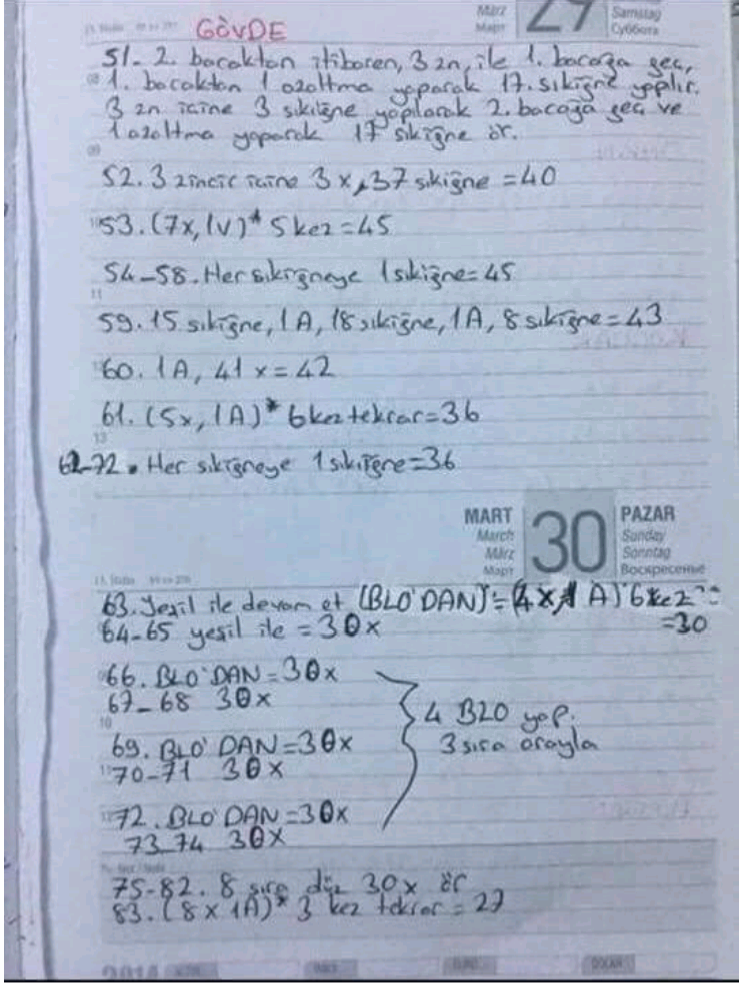 März
Март
29
Samstag
Суббота
GÖVDE
51-2. bacaktan itibaren, 3 zn, ile 1. bacağa geç,
1. bacaktan 1 azaltma yaparak 17. sıkiğne yapılır.
3 zn içine 3 sıkiğne yapılarak 2. bacağa geç ve
1 azaltma yaparak 17 sıkiğne ör.
52. 3 zincir içine 3x, 37 sıkiğne = 40
53. (7x, 1v)* 5 kez = 45
54-58. Her sıkiğneye 1 sıkiğne = 45
59. 15 sıkiğne, 1A, 18 sıkiğne, 1A, 8 sıkiğne = 43
60. 1A, 41 x = 42
61. (5x, 1A)* 6 kez tekrar = 36
62-72. Her sıkiğneye 1 sıkiğne = 36
MART
March
März
Март
30
PAZAR
Sunday
Sonntag
Воскресенье
63. Yeşil ile devam et (BLO'DAN) = (4x, 1A)* 6 kez =
=30
64-65 yeşil ile = 30x
66. BLO'DAN = 30x
67-68 30x
4 BLO yap.
3 sıra arayla
69. BLO'DAN = 30x
70-71 30x
72. BLO'DAN = 30x
73-74 30x
75-82. 8 sıra düz 30x ör
83. (8x 1A)* 3 kez tekrar = 27